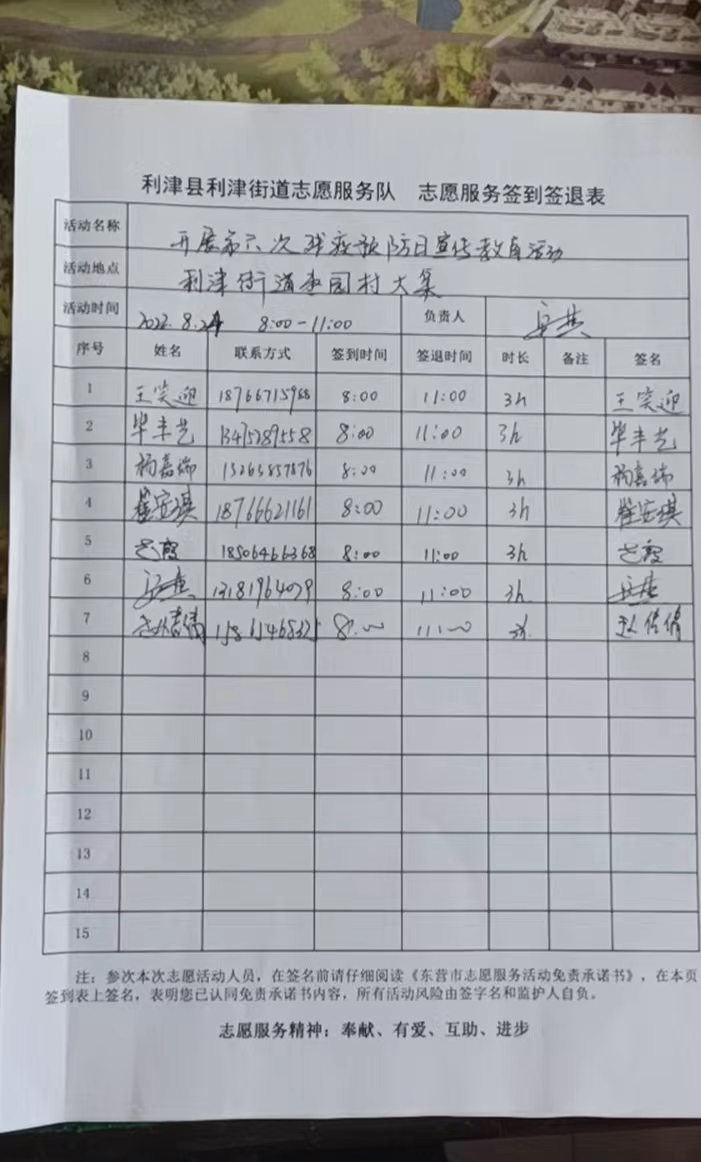 利津县利津街道志愿服务队 志愿服务签到签退表
活动名称 开展第六次残疾预防日宣传教育活动
活动地点 利津街道李园村大集
活动时间 2022.8.24 8:00-11:00 负责人
序号 姓名 联系方式 签到时间 签退时间 时长 备注 签名
1 王笑迎 8:00 11:00 3h 王笑迎
2 毕丰艺 13475289558 8:00 11:00 3h 毕丰艺
3 杨嘉瑞 15263857876 8:00 11:00 3h 杨嘉瑞
4 崔安琪 18766621161 8:00 11:00 3h 崔安琪
5 18506466368 8:00 11:00 3h
6 13181964079 8:00 11:00 3h
7 8:00 11:00 3h 赵倩倩
8
9
10
11
12
13
14
15
注：参次本次志愿活动人员，在签名前请仔细阅读《东营市志愿服务活动免责承诺书》，在本页
签到表上签名，表明您已认同免责承诺书内容，所有活动风险由签字名和监护人自负。
志愿服务精神：奉献、有爱、互助、进步